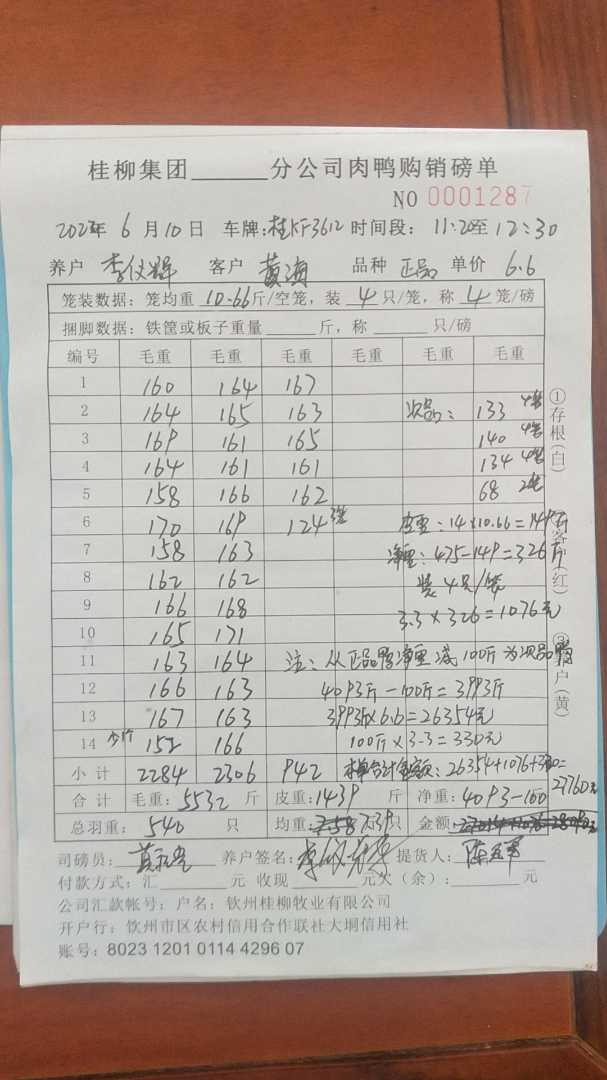 桂柳集团______分公司肉鸭购销磅单
NO 0001287
2023年 6 月 10 日 车牌:桂KF3612 时间段: 11:20至12:30
养户 李仪辉 客户 黄海 品种 正品 单价 6.6
笼装数据:笼均重 10.66 斤/空笼,装 4 只/笼,称 4 笼/磅
捆脚数据:铁筐或板子重量______斤,称______只/磅
编号 毛重 毛重 毛重 毛重 毛重 毛重
1 160 164 167
2 164 165 163 次品: 133 4笼
3 169 161 165 140 4笼
4 164 161 161 134 4笼
5 158 166 162 68 2笼
6 170 169 124 3笼 皮重:14×10.66=149斤
7 158 163 净重:475-149=326斤
8 162 162 装4只/笼
9 166 168 3.3×326=1076元
10 165 171
11 163 164 注:从正品鸭净重减100斤为次品鸭
12 166 163 4093斤-100斤=3993斤
13 167 163 3993斤×6.6=26354元
14 少1斤 152 166 100斤×3.3=330元
小计 2284 2306 942 本单合计金额:26354+1076+330=
27760元
合计 毛重:5532 斤 皮重:1439 斤 净重:4093-100
总羽重: 540 只 均重: 7.58 7.39只 金额
司磅员: 养户签名: 提货人:
付款方式:汇______元 收现______元欠(余):______元
公司汇款帐号:户名:钦州桂柳牧业有限公司
开户行:钦州市区农村信用合作联社大垌信用社
账号:8023 1201 0114 4296 07
①存根(白)
客 (红)
③ 户(黄)